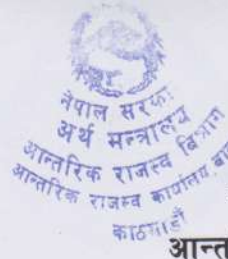 नेपाल सरकार
अर्थ मन्त्रालय
आन्तरिक राजस्व विभाग
आन्तरिक राजस्व कार्यालय
काठमाडौं
आन्त